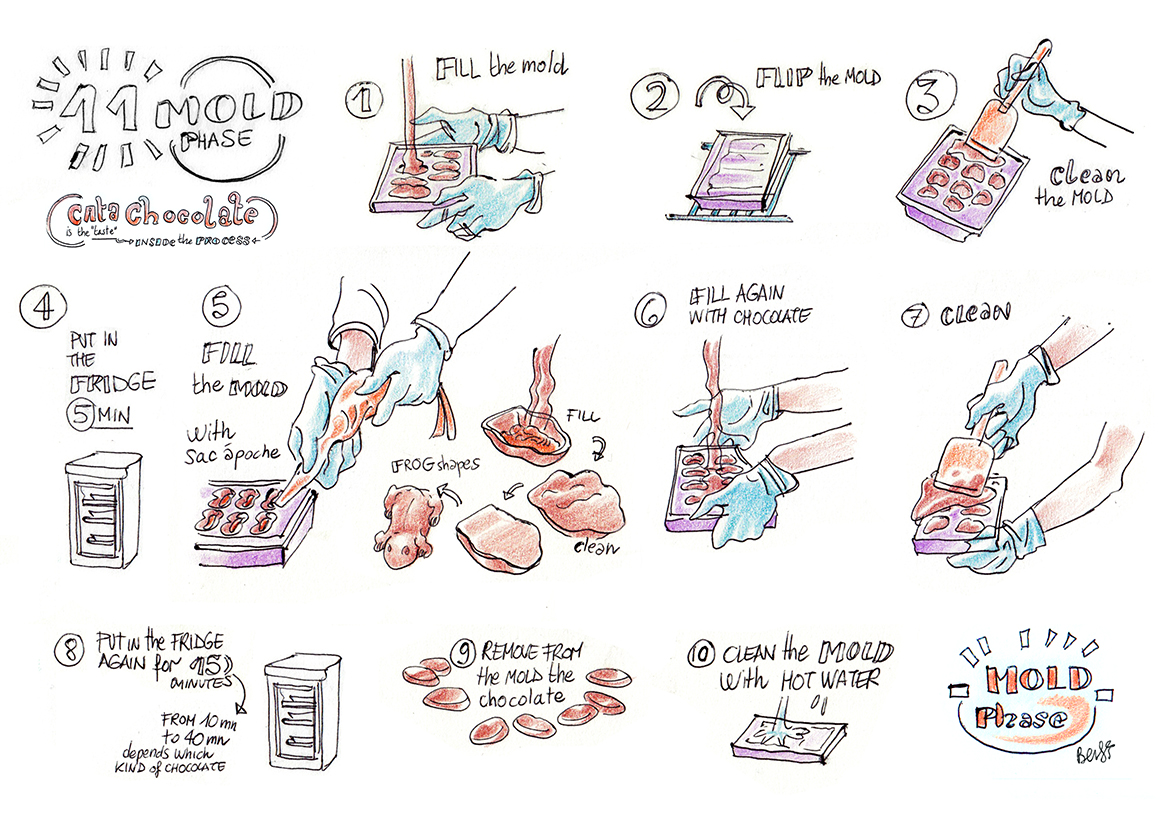 11 MOLD
PHASE
Cuta Chocolate
is the "taste"
INSIDE the PROCESS
1
FILL the mold
2
FLIP the MOLD
3
Clean
the MOLD
4
PUT IN
THE
FRIDGE
5 MIN
5
FILL
the MOLD
with
Sac ápoche
FROG shapes
FILL
clean
6
FILL AGAIN
WITH CHOCOLATE
7 CLEAN
8
PUT IN the FRIDGE
AGAIN for 15
MINUTES
FROM 10 mn
to 40 mn
depends which
KIND of CHOCOLATE
9
REMOVE FROM
the MOLD the
chocolate
10 CLEAN the MOLD
with HOT WATER
MOLD
Phase